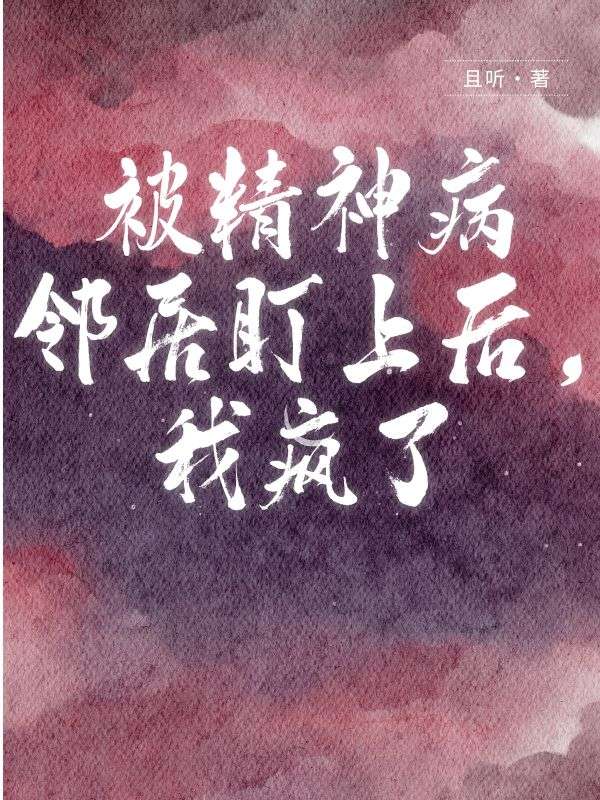 且听·著
被精神病
邻居盯上后,
我疯了